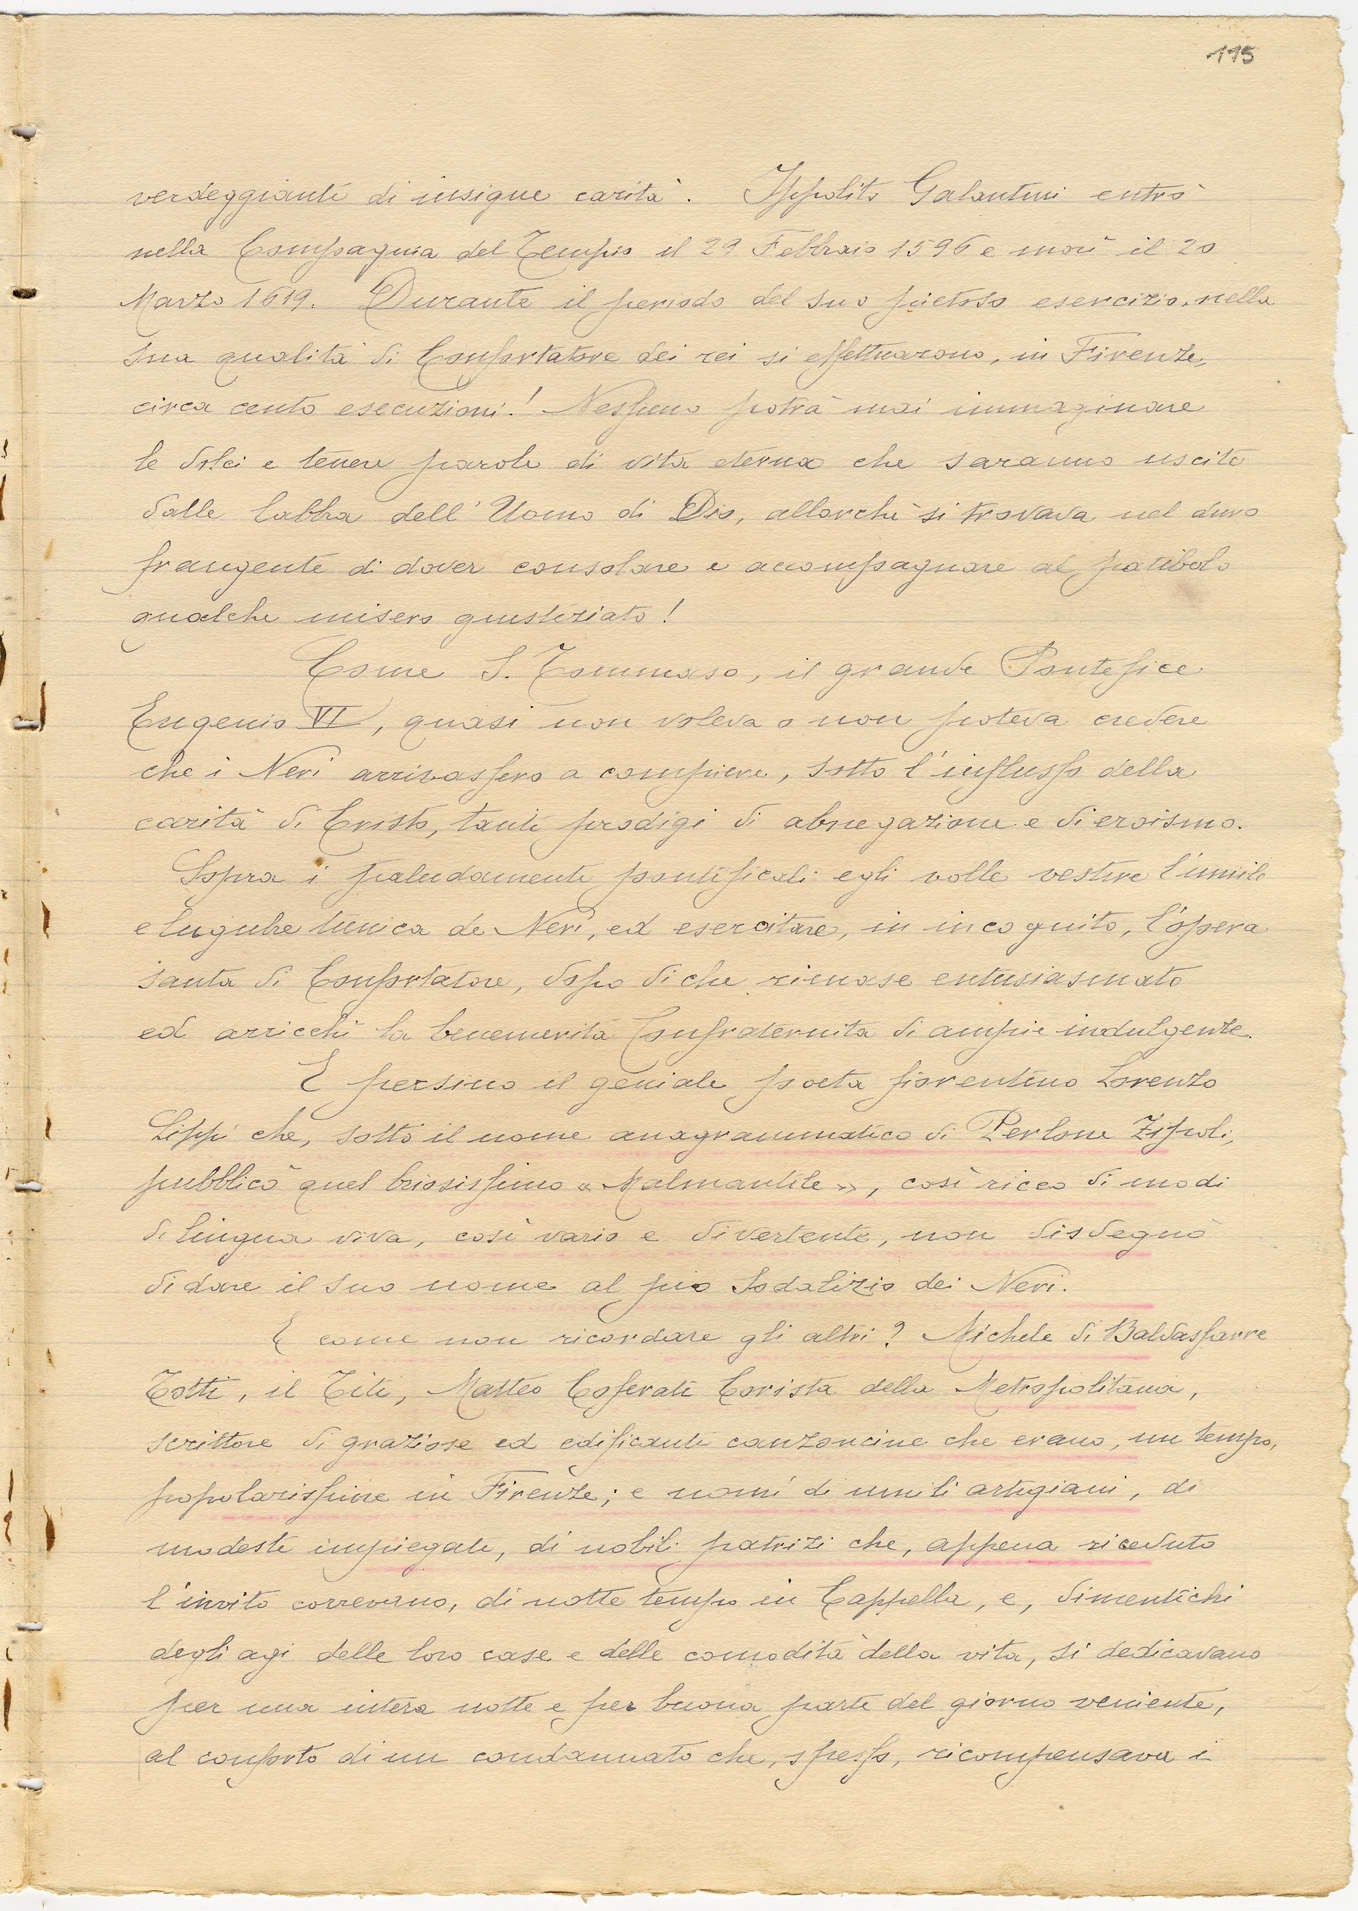 115
verdeggianti di insigne carità. Ippolito Galantini entrò
nella Compagnia del Tempio il 29 Febbraio 1596 e morì il 20
Marzo 1619. Durante il periodo del suo pietoso esercizio, nella
sua qualità di Confortatore dei rei si effettuarono, in Firenze,
circa cento esecuzioni! Nessuno potrà mai immaginare
le dolci e tenere parole di vita eterna che saranno uscite
dalle labbra dell'Uomo di Dio, allorchè si trovava nel duro
frangente di dover consolare e accompagnare al patibolo
qualche misero giustiziato!
Come S. Tommaso, il grande Pontefice
Eugenio VI, quasi non voleva o non poteva credere
che i Neri arrivassero a compiere, sotto l'influsso della
carità di Cristo, tanti prodigi di abnegazione e di eroismo.
Sopra i paludamenti pontificali egli volle vestire l'umile
e lugubre tunica de Neri, ed esercitare, in incognito, l'opera
santa di Confortatore, dopo di che rimase entusiasmato
ed arricchì la benemerita Confraternita di ampie indulgenze.
E persino il geniale poeta fiorentino Lorenzo
Lippi che, sotto il nome anagrammatico di Perlone Zipoli,
pubblicò quel briosissimo «Malmantile», così ricco di modi
di lingua viva, così vario e divertente, non disdegnò
di dare il suo nome al pio Sodalizio dei Neri.
E come non ricordare gli altri? Michele di Baldassarre
Totti, il Titi, Matteo Coferati Corista della Metropolitana,
scrittore di graziose ed edificanti canzoncine che erano, un tempo,
popolarissime in Firenze; e nomi di umili artigiani, di
modesti impiegati, di nobili patrizi che, appena ricevuto
l'invito correvano, di notte tempo in Cappella, e, dimentichi
degli agi delle loro case e delle comodità della vita, si dedicavano
per una intera notte e per buona parte del giorno veniente,
al conforto di un condannato che, spesso, ricompensava i